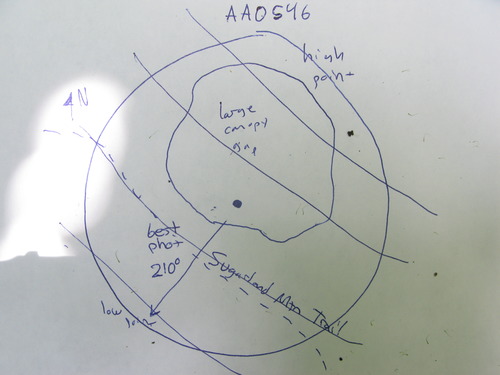 AA0546
high
point
N
large
canopy
gap
best
photo
210°
Sugarload Mtn Trail
low
point